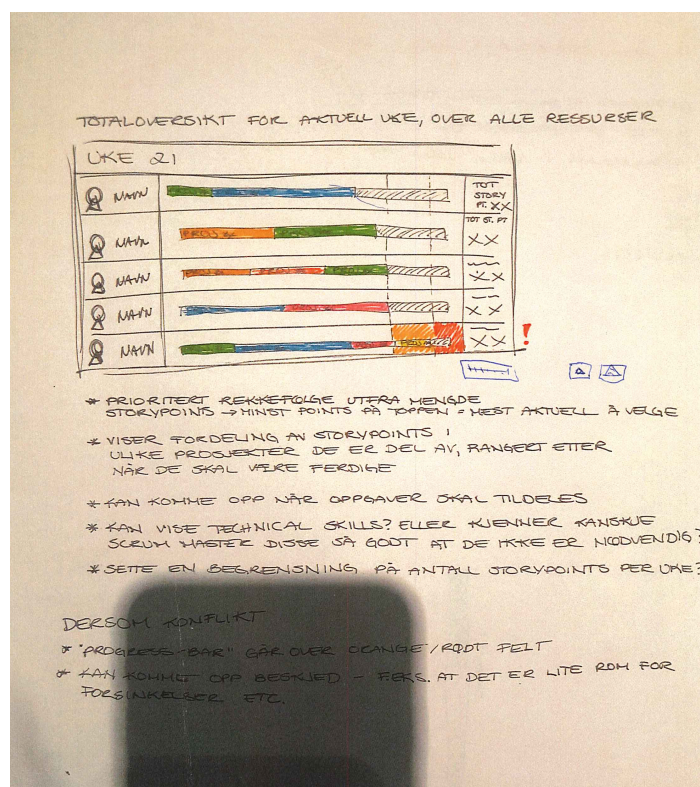 TOTALOVERSIKT FOR AKTUELL UKE, OVER ALLE RESSURSER
UKE 21
NAVN
TOT
STORY
PT. XX
NAVN
PROSJ.
TOT ST. PT
XX
NAVN
XX
NAVN
XX
NAVN
XX
!
* PRIORITERT REKKEFØLGE UTFRA MENGDE
STORYPOINTS → MINST POINTS PÅ TOPPEN = MEST AKTUELL Å VELGE
* VISER FORDELING AV STORYPOINTS I
ULIKE PROSJEKTER DE ER DEL AV, RANGERT ETTER
NÅR DE SKAL VÆRE FERDIGE
* KAN KOMME OPP NÅR OPPGAVER SKAL TILDELES
* KAN VISE TECHNICAL SKILLS? ELLER KJENNER KANSKJE
SCRUM MASTER DISSE SÅ GODT AT DE IKKE ER NØDVENDIG?
* SETTE EN BEGRENSNING PÅ ANTALL STORYPOINTS PER UKE?
DERSOM KONFLIKT
* "PROGRESS-BAR" GÅR OVER ORANGE/RØDT FELT
* KAN KOMME OPP BESKJED – F.EKS. AT DET ER LITE ROM FOR
FORSINKELSER ETC.